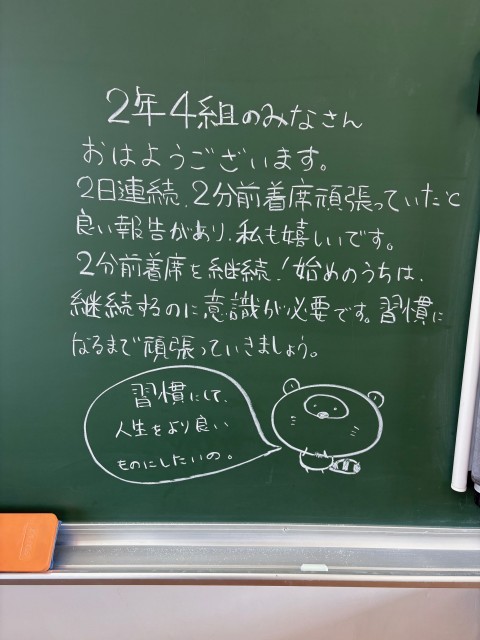 2年4組のみなさん
おはようございます。
2日連続、2分前着席頑張っていたと
良い報告があり、私も嬉しいです。
2分前着席を継続！始めのうちは、
継続するのに意識が必要です。習慣に
なるまで頑張っていきましょう。
習慣にして、
人生をより良い
ものにしたいの。